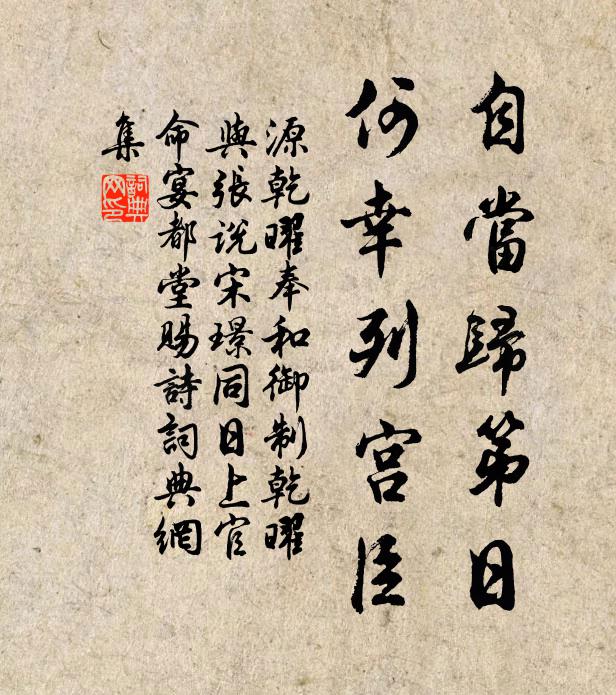 自當歸第日
何幸列宫臣
源乾曜奉和御制乾曜
與張說宋璟同日上官
命宴都堂賜詩詞典網
集
詞典
网印